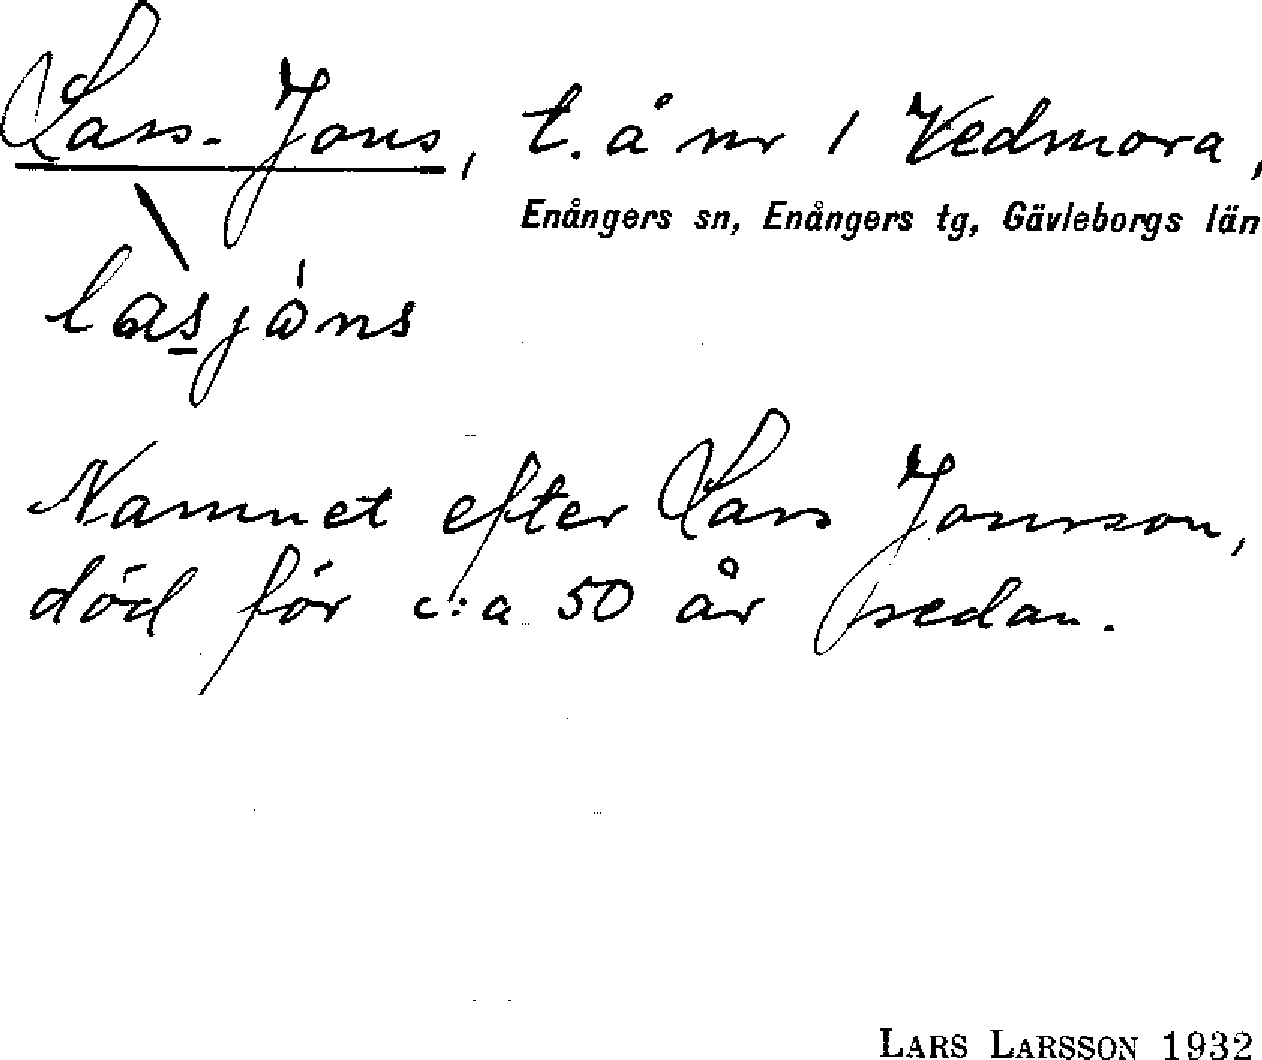 Lass-Jons, t. å nr 1 Vedmora,
Enångers sn, Enångers tg, Gävleborgs län
lasjòns
Namnet efter Lars Jonsson,
död för c:a 50 år sedan.
LARS LARSSON 1932